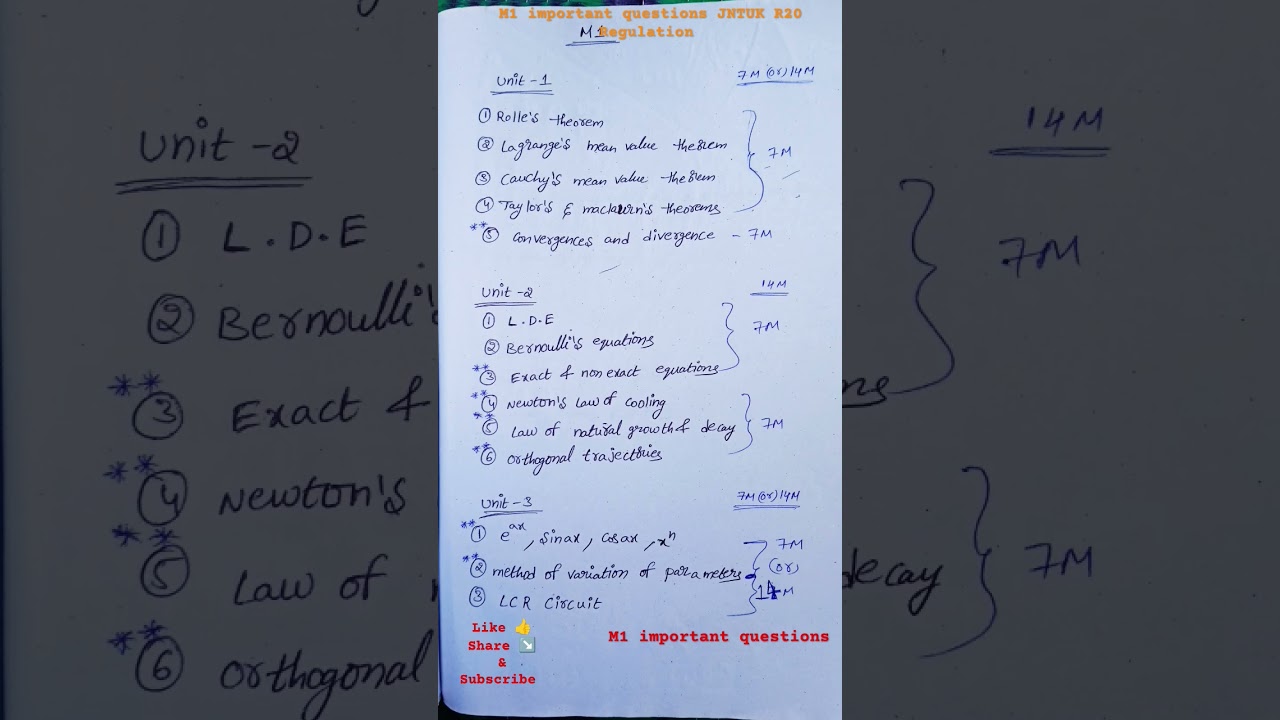 M1 important questions JNTUK R20
Regulation
M1
Unit-1
7M (or) 14M
① Rolle's theorem
② Lagrange's mean value theorem
③ Cauchy's mean value theorem
④ Taylor's & maclaurin's theorems
7M
** ⑤ convergences and divergence - 7M
Unit-2
14M
① L.D.E
② Bernoulli's equations
** ③ Exact & non exact equations
7M
** ④ Newton's Law of cooling
** ⑤ Law of natural growth & decay
** ⑥ orthogonal trajectories
7M
Unit-3
7M (or) 14M
** ① e^ax, sinax, cosax, x^n
** ② method of variation of parameters
③ LCR circuit
7M
(or)
14M
Like 👍
Share ↘️
&
Subscribe
M1 important questions
Unit-2
① L.D.E
② Bernoulli's
** ③ Exact &
** ④ Newton's
** ⑤ Law of
** ⑥ orthogonal
14M
7M
ns
decay
7M